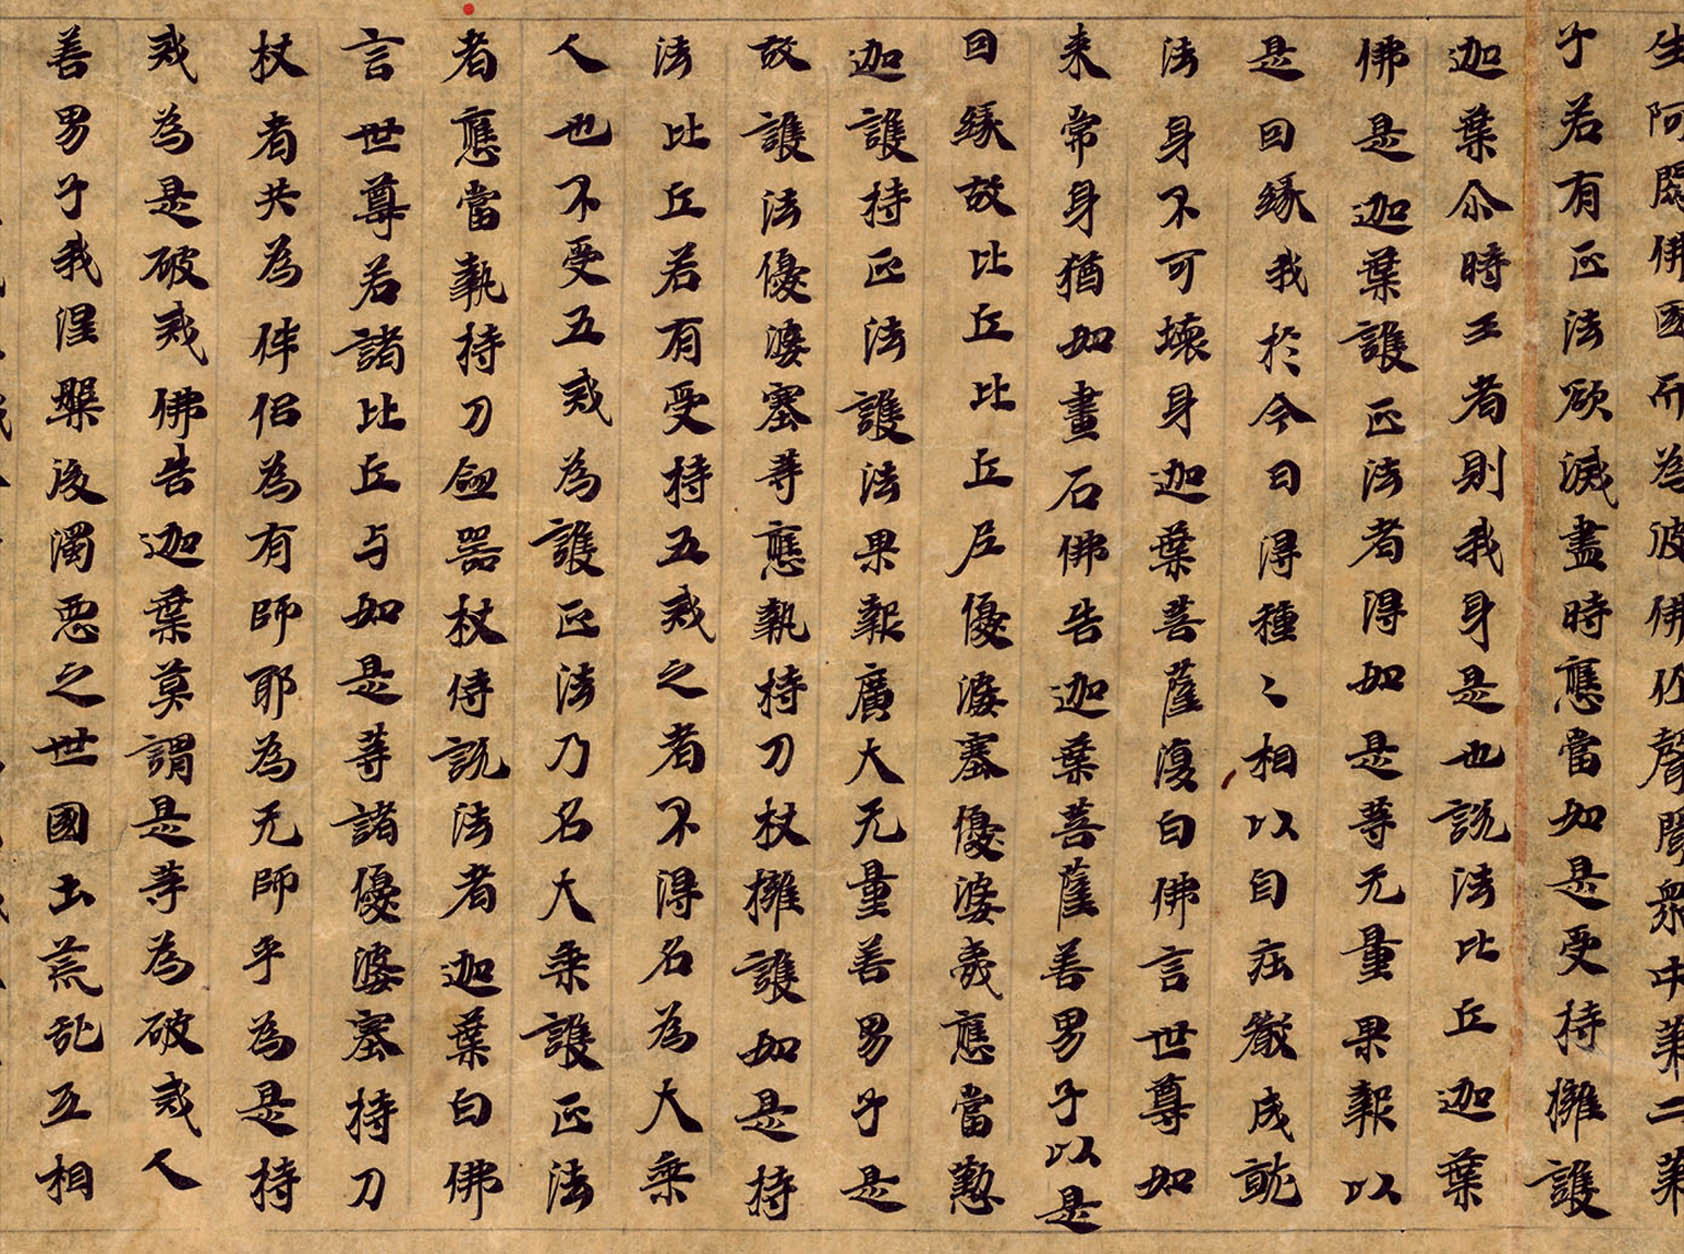 生阿閦佛國而為彼佛作聲聞衆中苐二苐
子若有正法欲滅盡時應當如是受持擁護
迦葉尒時王者則我身是也說法比丘迦葉
佛是迦葉護正法者得如是等无量果報以
是因緣我於今日得種〻相以自莊嚴成就
法身不可壞身迦葉菩薩復白佛言世尊如
来常身猶如畫石佛告迦葉菩薩善男子以是
因緣故比丘比丘尼優婆塞優婆夷應當懃
迦護持正法護法果報廣大无量善男子是
故護法優婆塞等應執持刀杖擁護如是持
法比丘若有受持五戒之者不得名為大乘
人也不受五戒為護正法乃名大乘護正法
者應當執持刀劒器杖侍說法者迦葉白佛
言世尊若諸比丘与如是等諸優婆塞持刀
杖者共為伴侶為有師耶為无師乎為是持
戒為是破戒佛告迦葉莫謂是等為破戒人
善男子我涅槃後濁惡之世國土荒乱互相